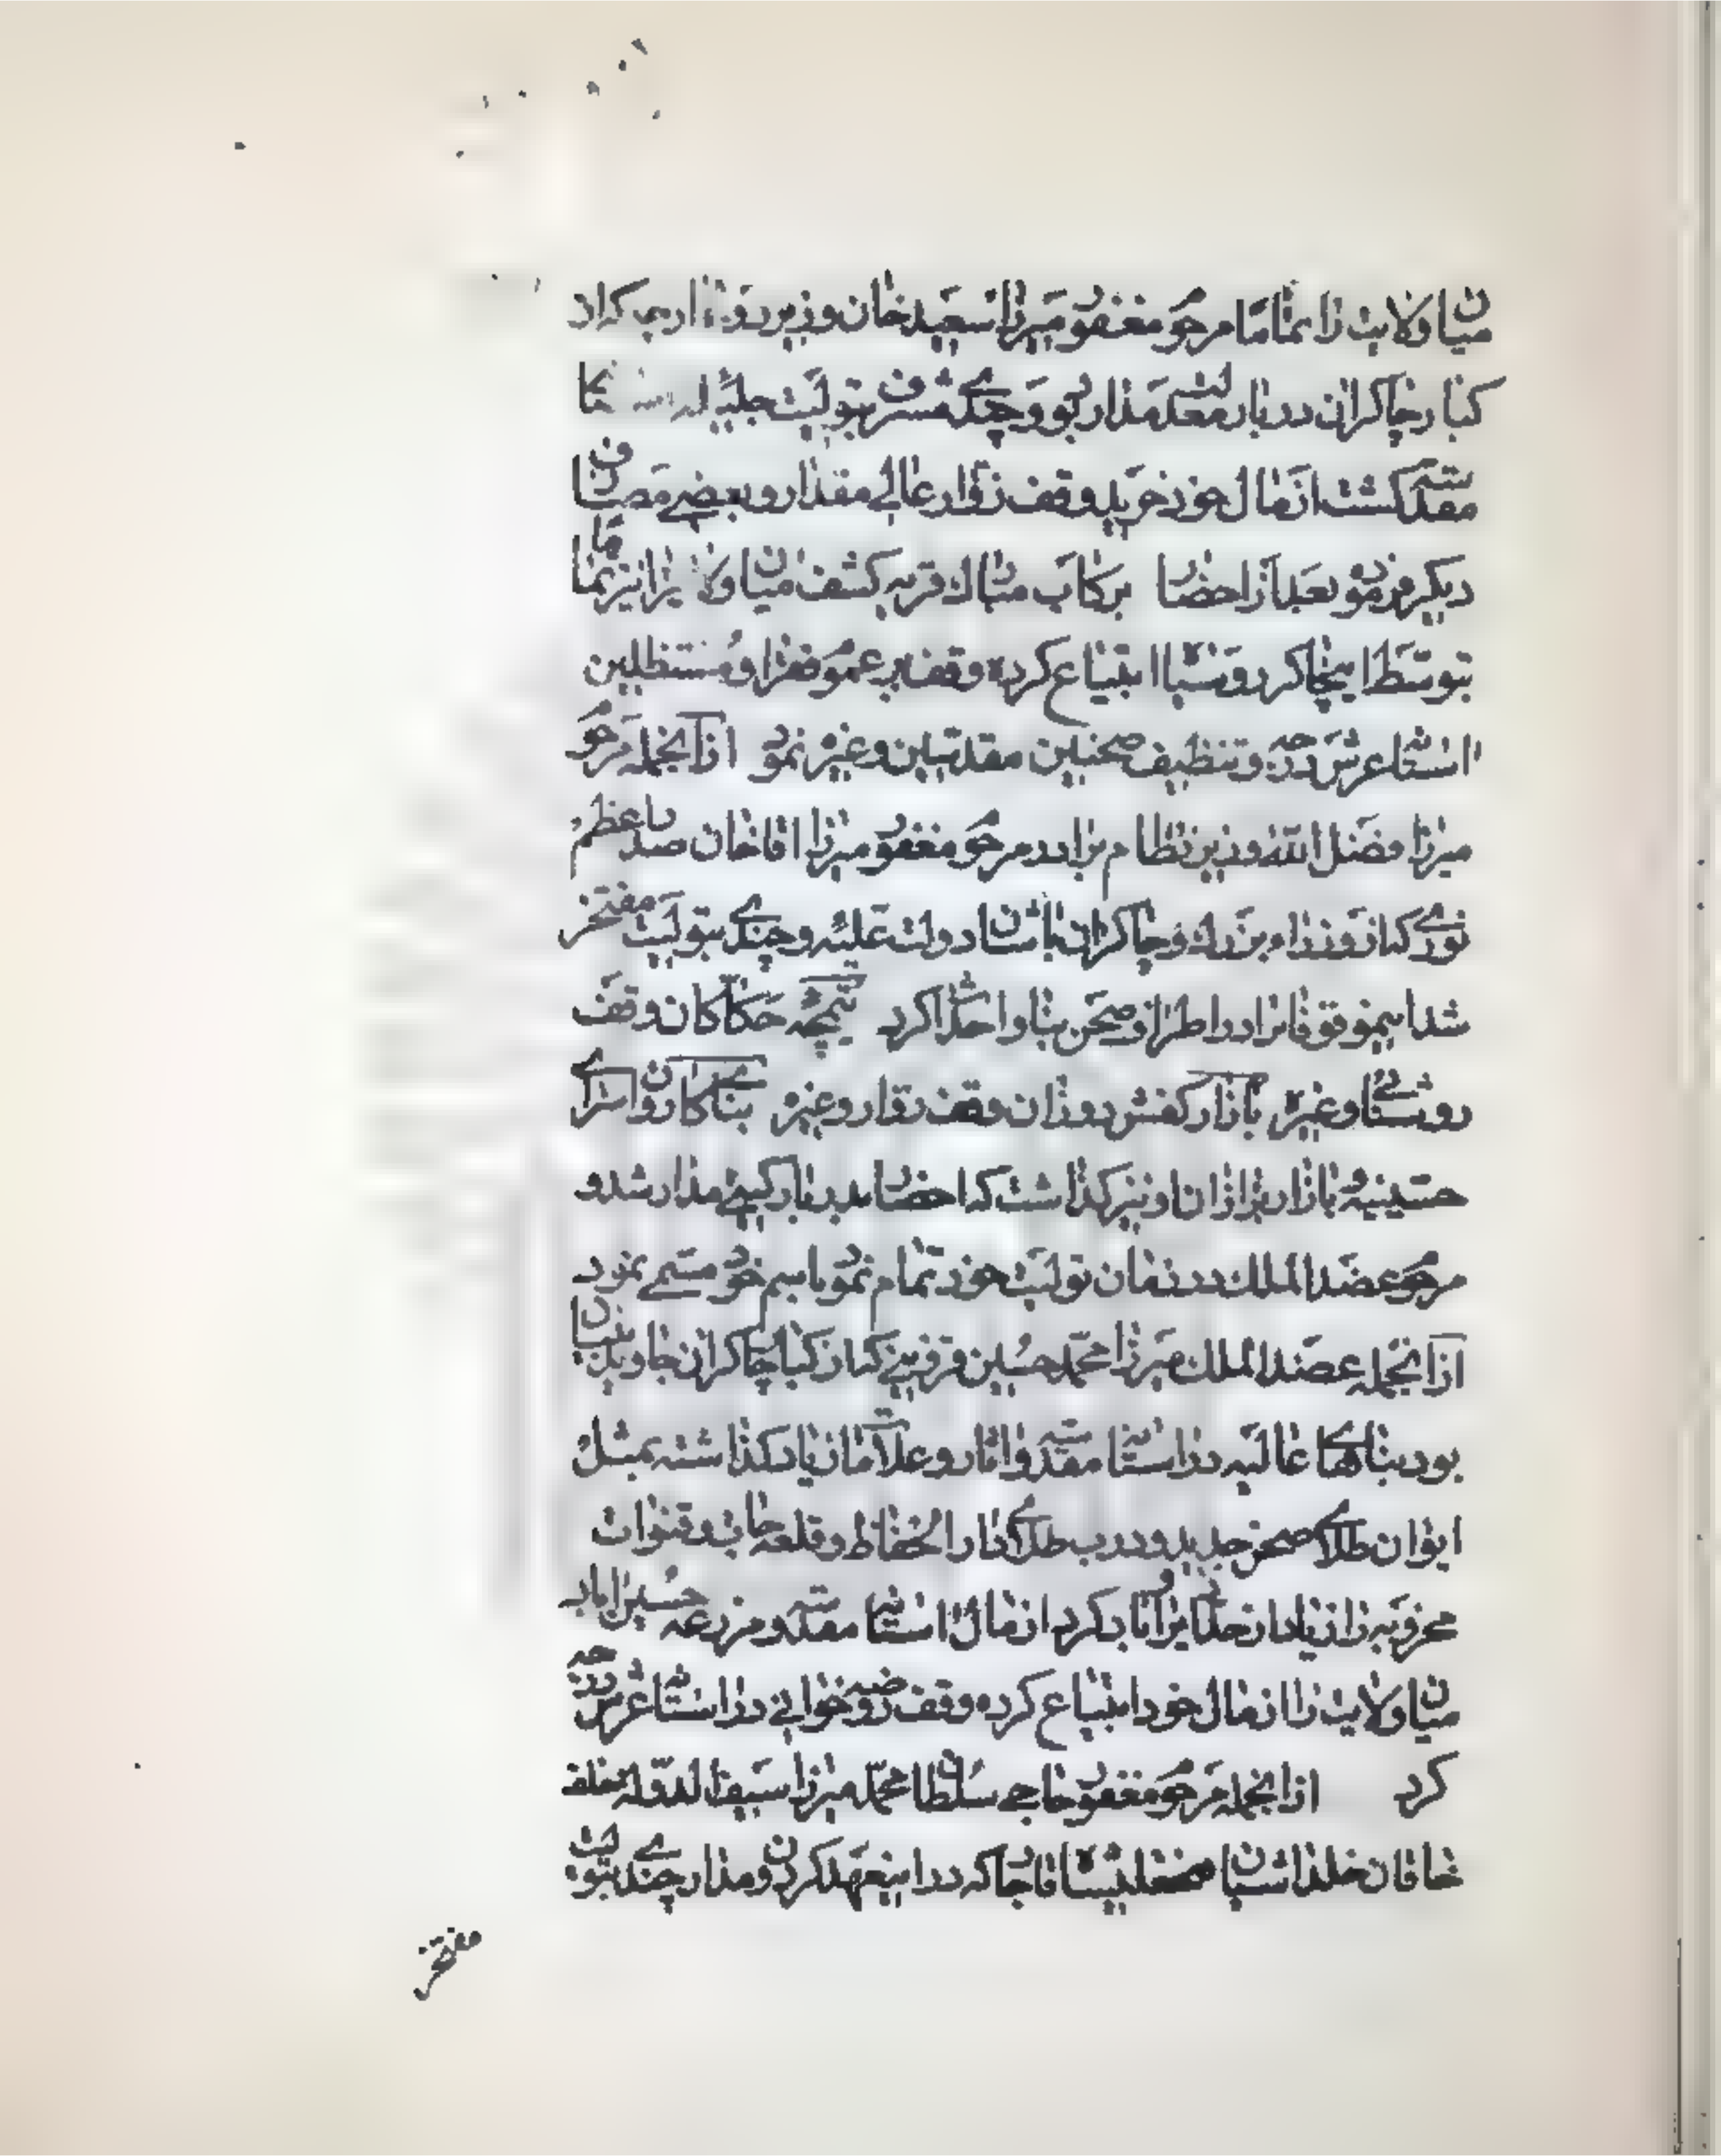 میان ولایت را تماما مرحوم مغفور میرزا سعید خان وزیر که از
کبار چاکران دربار معدلت مدار بود و چندی مشرف بتولیت جلیله
مقدسه گشت از مال خود خرید و وقف زوار عالی مقدار و بعضی مصارف
دیگر فرمود بعد از احضار برکاب مبارک قریه کشف میان ولایت را نیز تماما
بتوسط اینجا کرد و شبها ابتیاع کرده وقف بر عموم فقرا و منتظلین
استان عرش درجه و تنظیف صحنین مقدسین و غیره نمود ازانجمله مرحوم
میرزا فضل الله وزیر نظام برادر مرحوم مغفور میرزا اقا خان صدر اعظم
نوری که از وزراء بزرک و چاکران باستان دولت علیه و چندی بتولیت مفتخر
شد ایموقوفا برادر اطراف صحن بنا و احداث کرد تیمچه حکاکان وقف
روشنائی و غیره بازار کفش دوزان وقف زوار و غیره بنای کاروانسرای
حسینیه بازار بزازان او نیز گذاشت که احضار بدربار کیتی مدار شد و
مرحوم عضد الملک در زمان تولیت خود تمام نمود باسم خود مسمی نمود
ازانجمله عضد الملک میرزا محمد حسین قزوینی که از کبار چاکران جاوید بنیان
بود بناهای عالیه در استانه مقدسه و اثار و علامات زیاد گذاشته بمثل
ایوان طلای صحن جدید و درب طلای دار الحفاظ و قلعه جات و قنوات
مخروبه را زیاد از حد دایر و اباد کرد از مال استانه مقدسه و مزرعه حسین اباد
میان ولایت را از مال خود ابتیاع کرده وقف روضه خوانی در استانه عرش درجه
کرد ازانجمله مرحوم مغفور حاجی سلطان محمد میرزا سیف الدوله خلف
خاقان خلد اشیان فتحعلیشاه قاجار که در این عهد کردون مدار چندی بتولیت
مفتخر